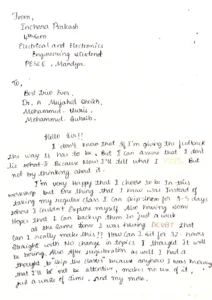 From,
Inchana Prakash
4th sem
Electrical and Electronics
Engineering student
PESCE, Mandya.
To,
Best Duo Ever,
Dr. A Mujahid Sheikh,
Mohammed
Mohammed
Hello Sir!!
I don't know that if I'm giving the feedback
the way it has to be. But I can assure that I don't
lie what I Because Now I'll tell what I But
not by thinking about it.
I'm very happy that I chose to be in this
workshop but one thing that I knew was Instead of
taking my regular class I can skip them for 4-5 days
when I couldn't Explore myself. Also having some
Hopes that I can backup them in just a week
at the same time I was having DOUBT that
Can I really make this?? How can I sit for 32 hours
straight with No change in topics I thought It will
be boring. Also after registration as well I had a
thought to skip the classes because anyhow I was knowing
that I'll be not be attentive, makes no use of it,
just a waste of time and my mom.